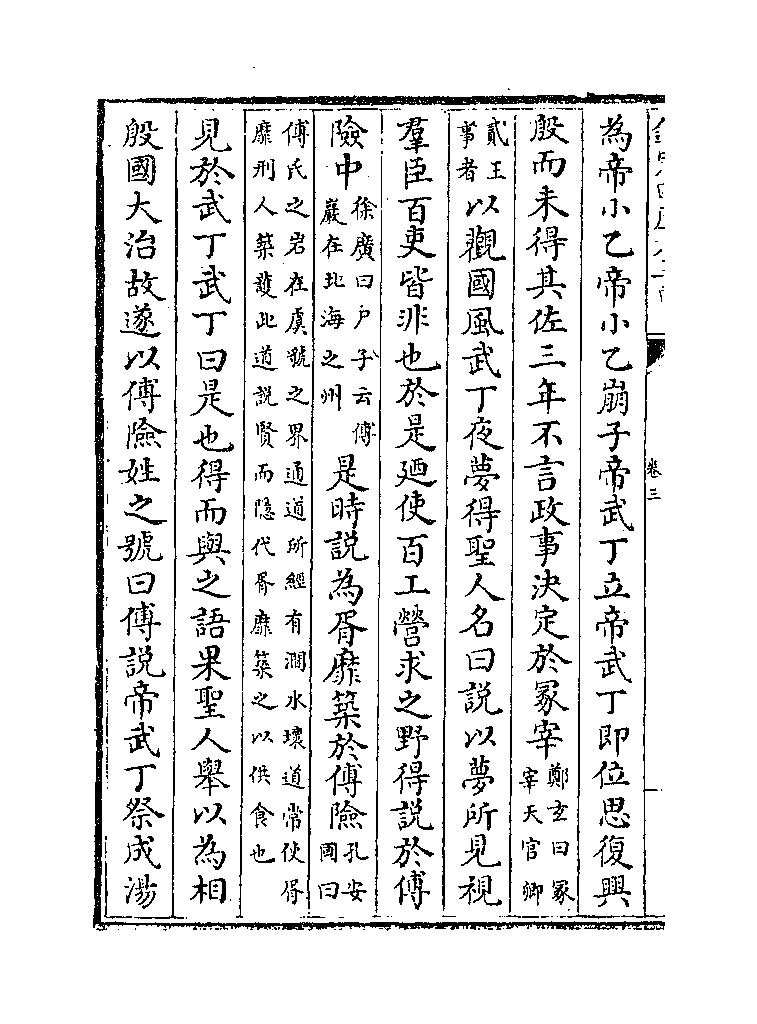 卷三
為帝小乙帝小乙崩子帝武丁立帝武丁即位思復興
殷而未得其佐三年不言政事決定於冢宰鄭玄曰冢宰天官卿
貳王事者以觀國風武丁夜夢得聖人名曰說以夢所見視
羣臣百吏皆非也於是廼使百工營求之野得說於傅
險中徐廣曰户子云傅巖在北海之州是時說為胥靡築於傅險孔安國曰
傅氏之岩在虞虢之界通道所經有澗水壞道常使胥
靡刑人築護此道說賢而隱代胥靡築之以供食也
見於武丁武丁曰是也得而與之語果聖人舉以為相
殷國大治故遂以傅險姓之號曰傅說帝武丁祭成湯